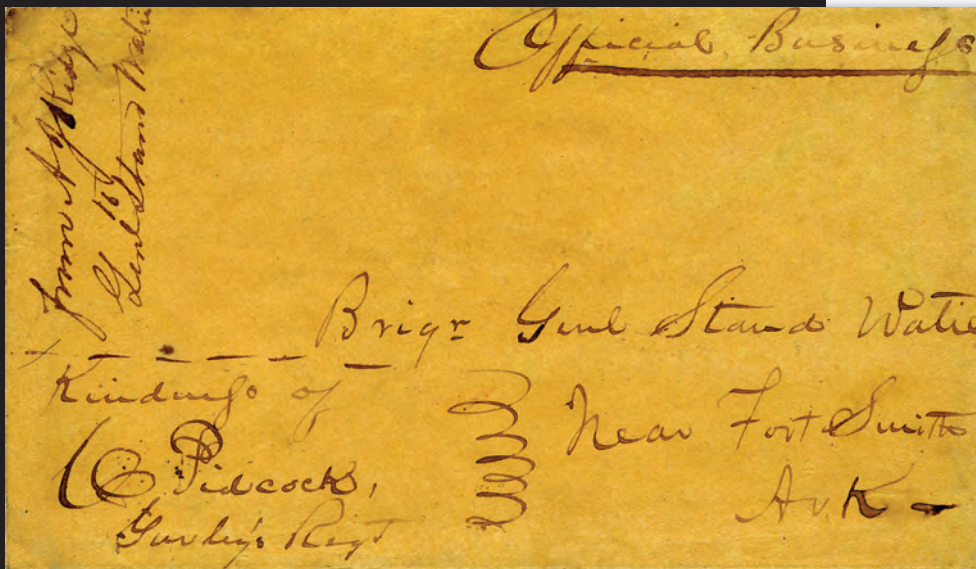 Official Business
from A J Ridge
to
Genl Stand Watie
Brigr Genl Stand Watie
Near Fort Smith
Ark
Kindness of
Pidcock,
Gurley's Regt